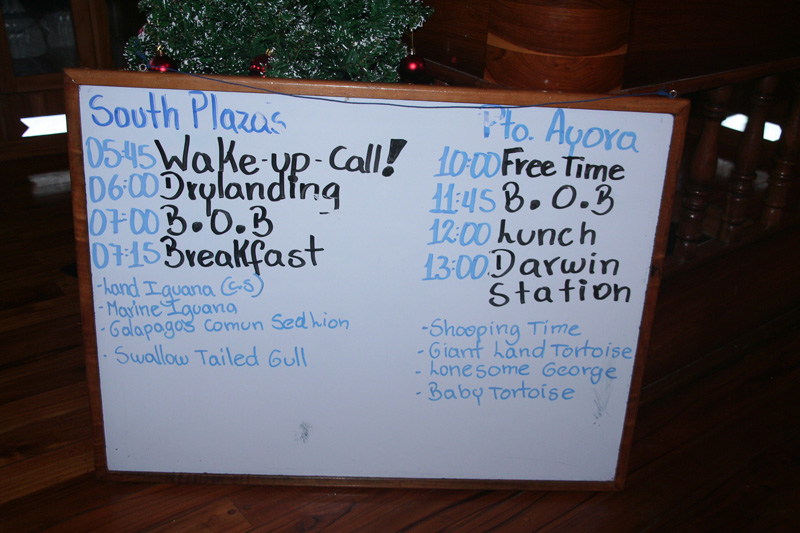 South Plazas
05:45 Wake-up-Call!
06:00 Drylanding
07:00 B.O.B
07:15 Breakfast
-Land Iguana (G.S)
-Marine Iguana
-Galapagos Comun Sea Lion
-Swallow Tailed Gull
Pto. Ayora
10:00 Free Time
11:45 B.O.B
12:00 Lunch
13:00 Darwin
Station
-Shooping Time
-Giant Land Tortoise
-Lonesome George
-Baby Tortoise